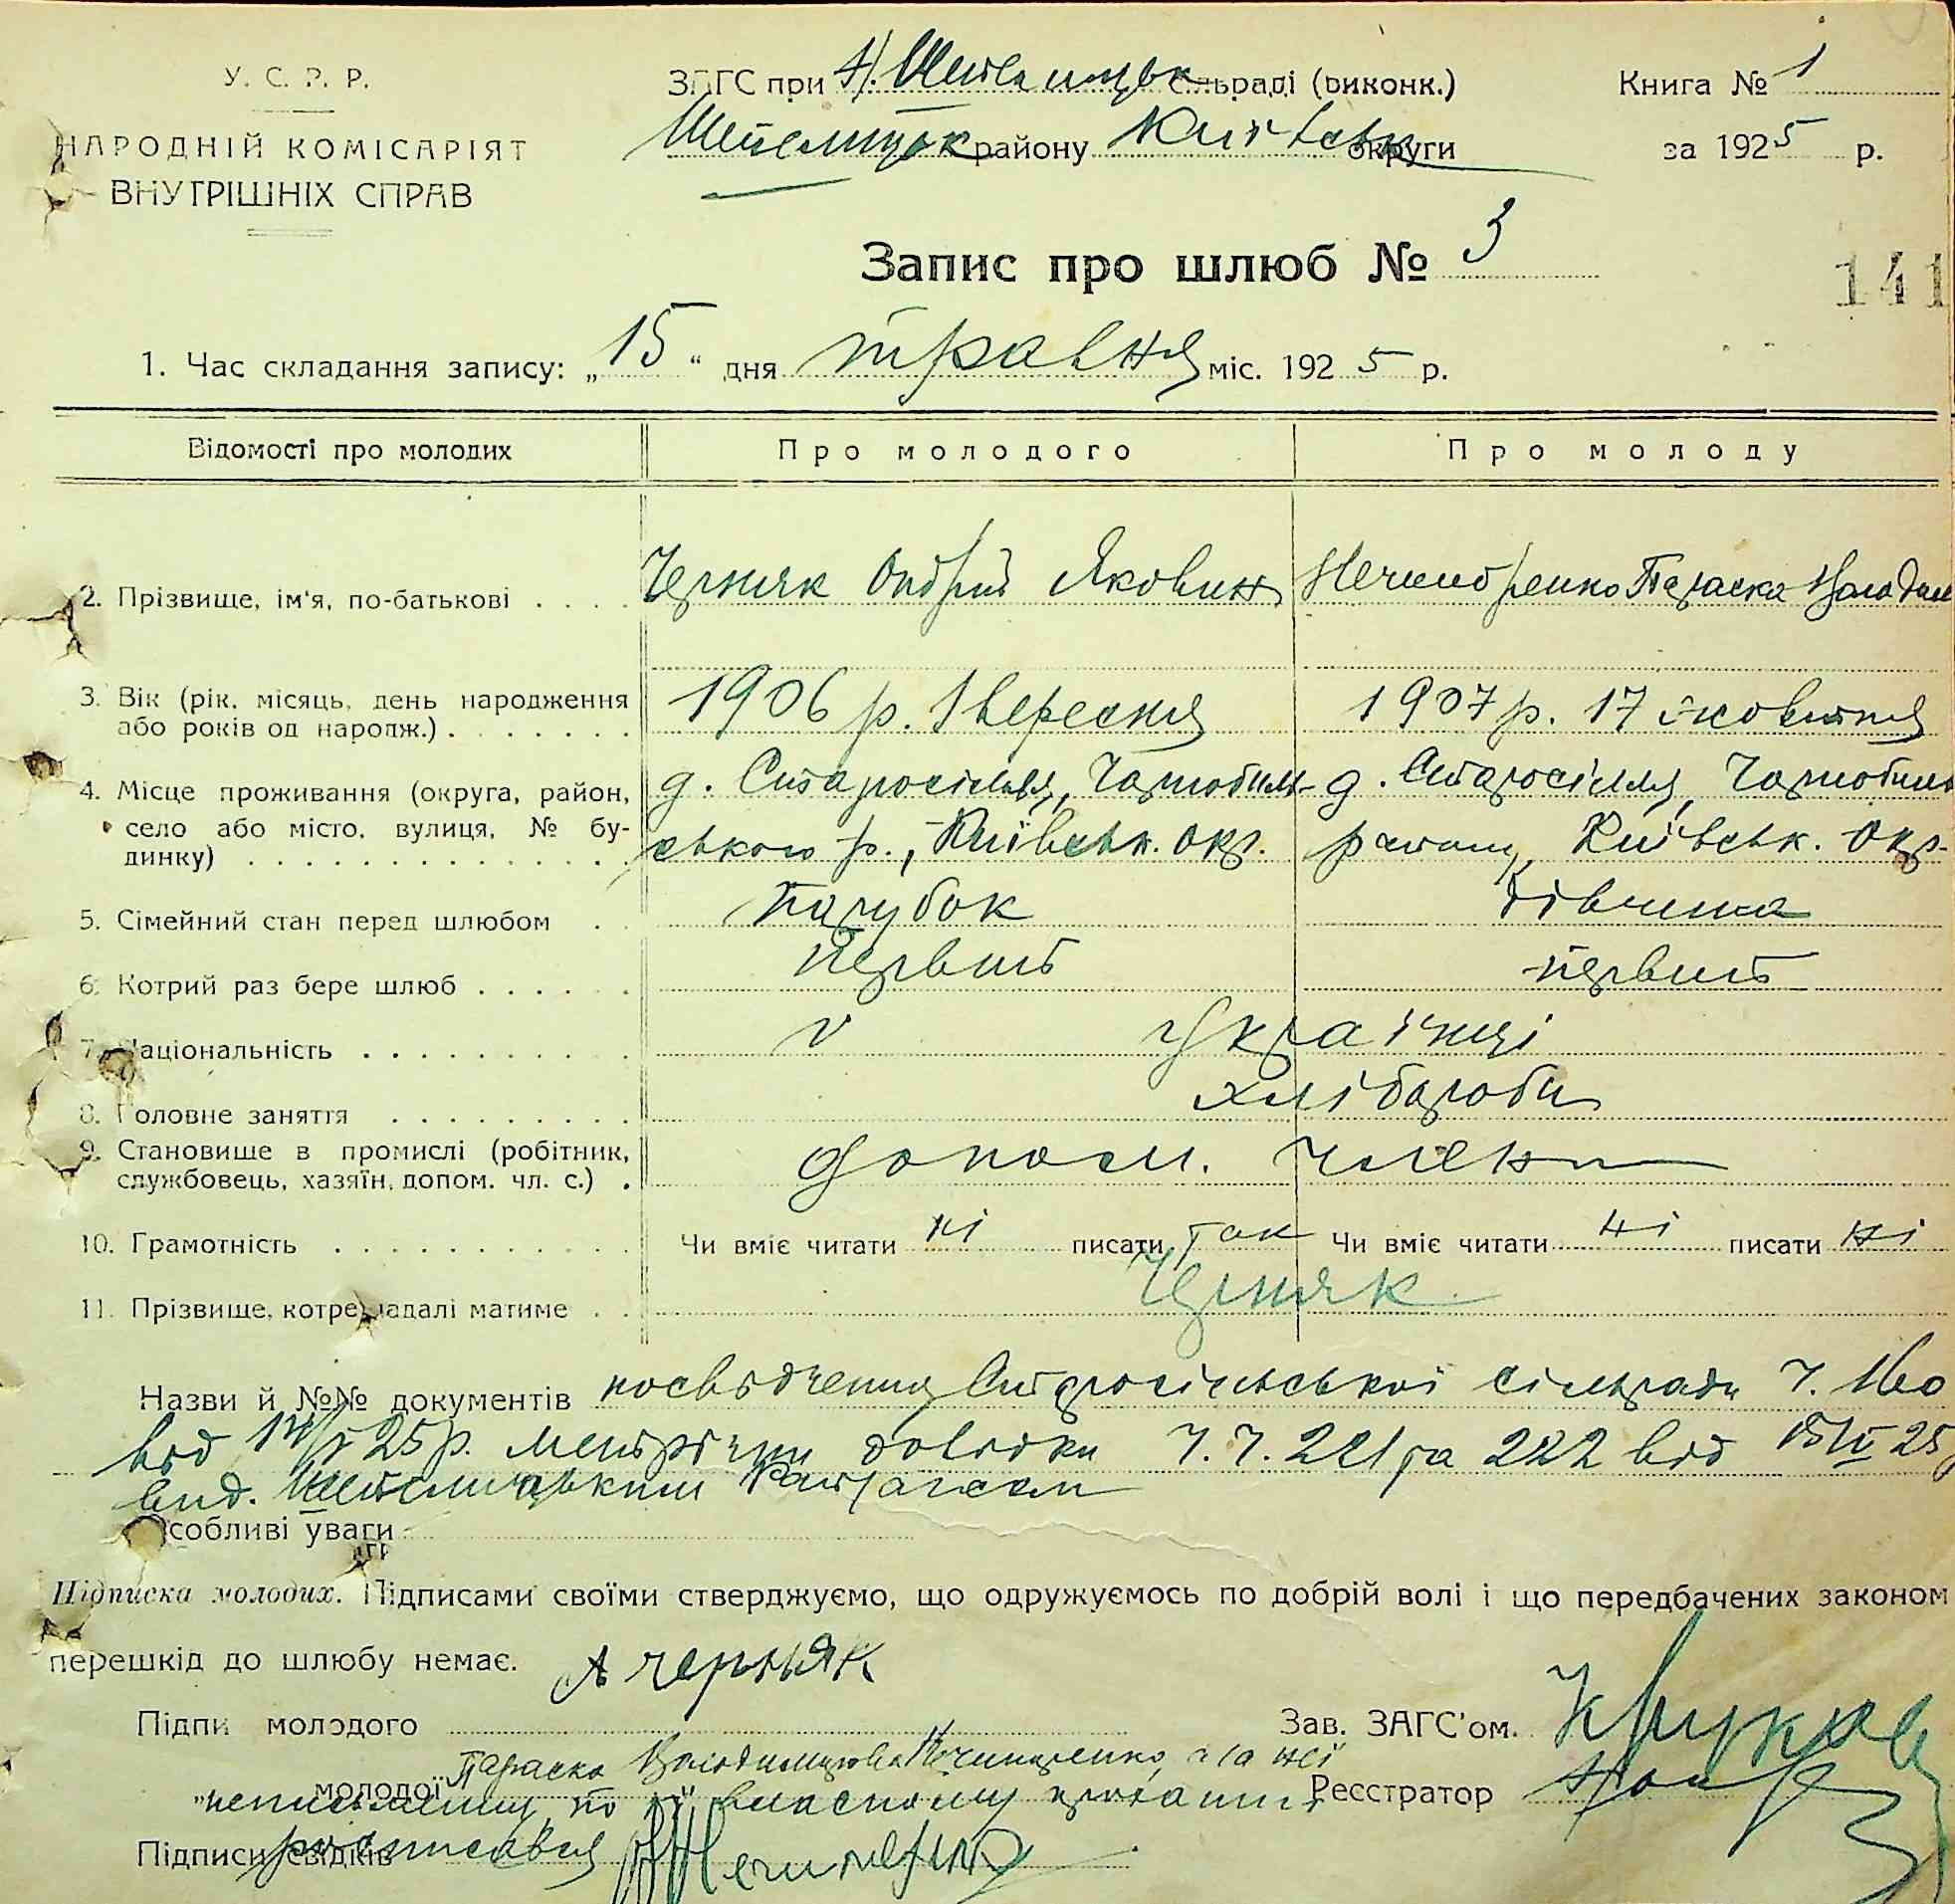 У. С. Р. Р.
НАРОДНІЙ КОМІСАРІЯТ
ВНУТРІШНІХ СПРАВ
ЗАГС при Н. Шепелицьк сільраді (виконк.)
Шепелицьк району Київськ округи
Книга № 1
за 1925 р.
Запис про шлюб № 3
141
1. Час складання запису: „15“ дня травня міс. 1925 р.
Відомості про молодих Про молодого Про молоду
2. Прізвище, ім'я, по-батькові Черняк Андрій Якович Нечипоренко Параска Володим
3. Вік (рік, місяць, день народження 1906 р. 1 вересня 1907 р. 17 жовтня
або років од народж.)
4. Місце проживання (округа, район, д. Старосілля, Чарнобиль- д. Старосілля, Чарнобильс
село або місто, вулиця, № бу- ського р., Київськ. окр. району, Київськ. Окр.
динку)
5. Сімейний стан перед шлюбом парубок дівчина
6. Котрий раз бере шлюб первий первий
7. Національність українці
8. Головне заняття хлібороби
9. Становище в промислі (робітник, допом. члени
службовець, хазяїн, допом. чл. с.)
10. Грамотність Чи вміє читати ні писати так Чи вміє читати ні писати ні
11. Прізвище, котре надалі матиме Черняк
Назви й №№ документів посвідчення Старосільської сільради Ч. 160
від 14/V 25р. довідки Ч.Ч. 221 та 222 від 15/V 25р
вид. Шепелицьким
Особливі уваги
Підписка молодих. Підписами своїми стверджуємо, що одружуємось по добрій волі і що передбачених законом
перешкід до шлюбу немає. А Черняк
Підпи молодого Зав. ЗАГС'ом.
Параска Володимирівна Нечипоренко, а за неї
„ молодої неписьменну по її власному проханню Реєстратор
Підписи свідків розписався